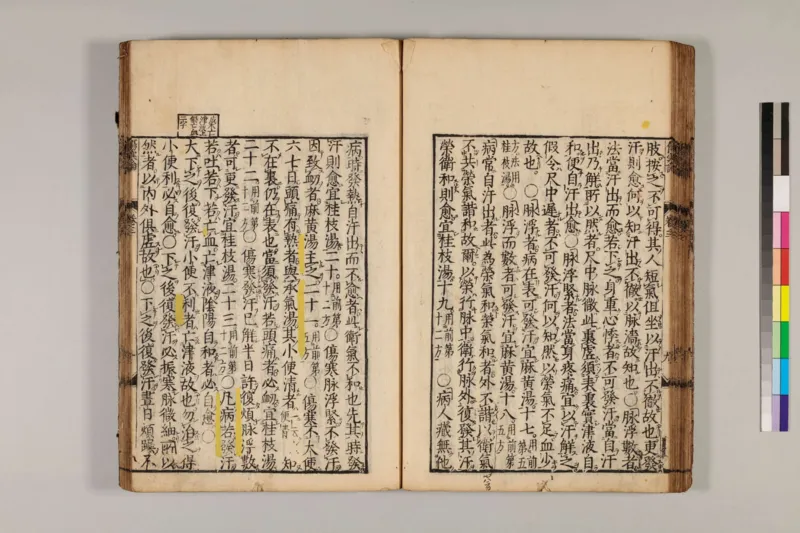 肢按之不可得其人短氣但坐以汗出不徹故也更發
汗則愈何以知汗出不徹以脉濇故知也○脉浮數者
法當汗出而愈若下之身重心悸者不可發汗當自汗
出乃解所以然者尺中脉微此裏虛須表裏實津液自
和便自汗出愈○脉浮緊者法當身疼痛宜以汗解之
假令尺中遲者不可發汗何以知然以榮氣不足血少
故也○脉浮者病在表可發汗宜麻黄湯十七用前第五
方法用桂枝湯○脉浮而數者可發汗宜麻黄湯十八用前第五方
病常自汗出者此為榮氣和榮氣和者外不諧以衛氣
不共榮氣諧和故爾以榮行脉中衛行脉外復發其汗
榮衛和則愈宜桂枝湯十九用前第十二方○病人藏無他
病時發熱自汗出而不愈者此衛氣不和也先其時發
汗則愈宜桂枝湯二十用前第十二方○傷寒脉浮緊不發汗
因致衂者麻黄湯主之二十一用前第五方○傷寒不大便
六七日頭痛有熱者與承氣湯其小便清者一云大便青知
不在裏仍在表也當須發汗若頭痛者必衂宜桂枝湯
二十二用前第十二方○傷寒發汗已解半日許復煩脉浮數
者可更發汗宜桂枝湯二十三用前第十二方○凡病若發汗
若吐若下若亡血亡津液陰陽自和者必自愈○
大下之後復發汗小便不利者亡津液故也勿治之得
小便利必自愈○下之後復發汗必振寒脉微細所以
然者以内外俱虛故也○下之後復發汗晝日煩躁不